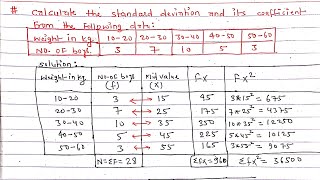 # Calculate the standard deviation and its coefficient
from the following data:
Weight in kg 10-20 20-30 30-40 40-50 50-60
No. of boys 3 7 10 5 3
solution:
Weight in kg No. of boys (f) Mid value (X) FX FX²
10-20 3 15 45 3*15² = 675
20-30 7 25 175 7*25² = 4375
30-40 10 35 350 10*35² = 12250
40-50 5 45 225 5*45² = 10125
50-60 3 55 165 3*55² = 9075
N=Σf= 28 Σfx= 960 Σfx² = 36500